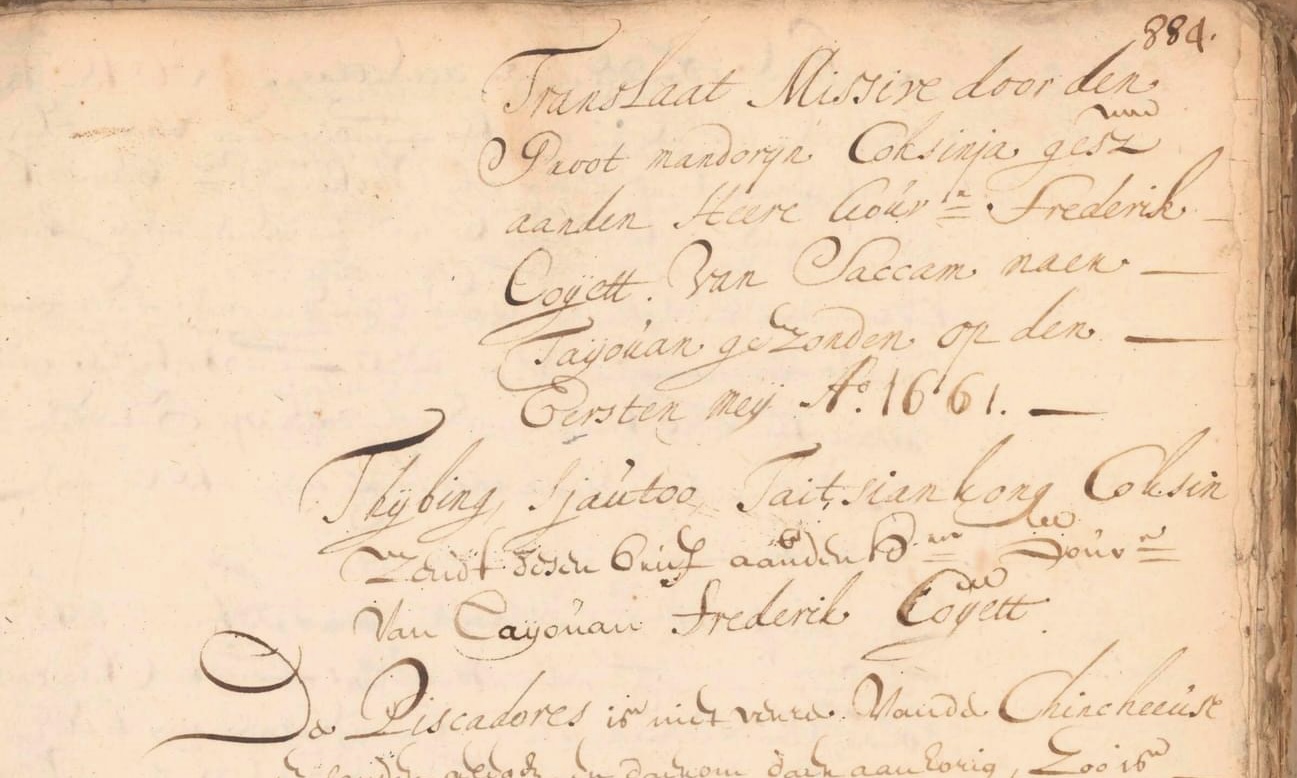 884.
Translaat Missive door den
Groot mandorijn Coksinja gesz
aanden Heere Gouvr Frederik
Coyett. Van Saccam naer
Tayouan gezonden op den
Eersten meij Ao. 1661.
Thijbing, Sjautoo, Taitsiankong Coksin
Zendt desen brief aanden Hr Gouvr
Van Tayouan Frederik Coyett.
De Piscadores is niet verre Vande Chincheeuse
Eijlanden gelegen en daerom daer aan horig, Zoo is